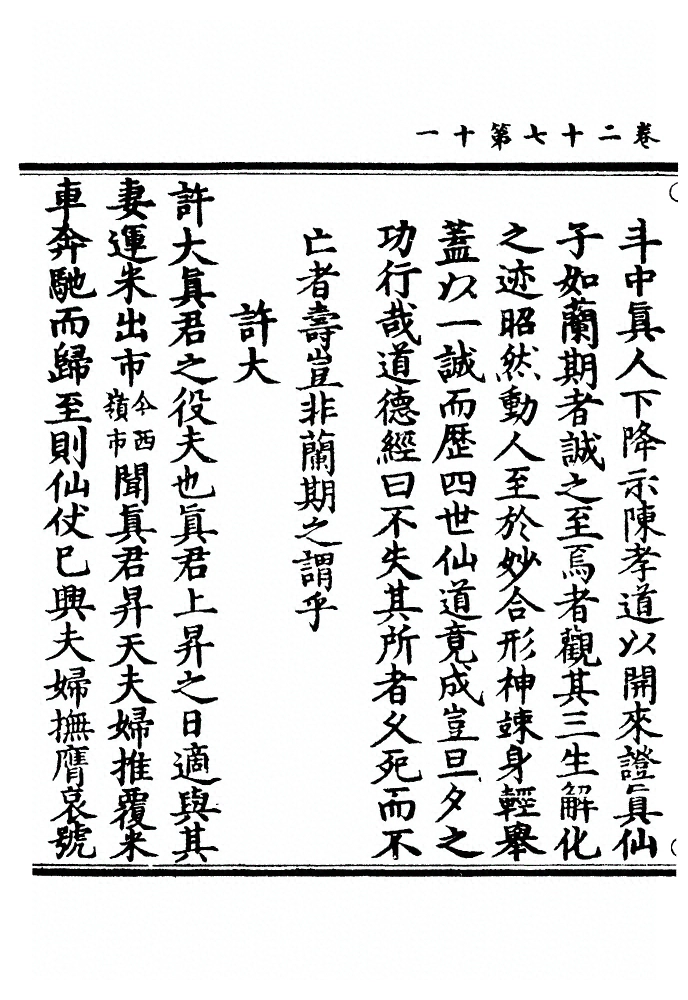 卷二十七第十一
斗中眞人下降示陳孝道以開來證眞仙
子如蘭期者誠之至焉者觀其三生解化
之迹昭然動人至於妙合形神竦身輕舉
蓋以一誠而歷四世仙道竟成豈旦夕之
功行哉道德經曰不失其所者久死而不
亡者壽豈非蘭期之謂乎
許大
許大眞君之役夫也眞君上昇之日適與其
妻運米出市今西嶺市聞眞君昇天夫婦推覆米
車奔馳而歸至則仙仗已興夫婦撫膺哀號